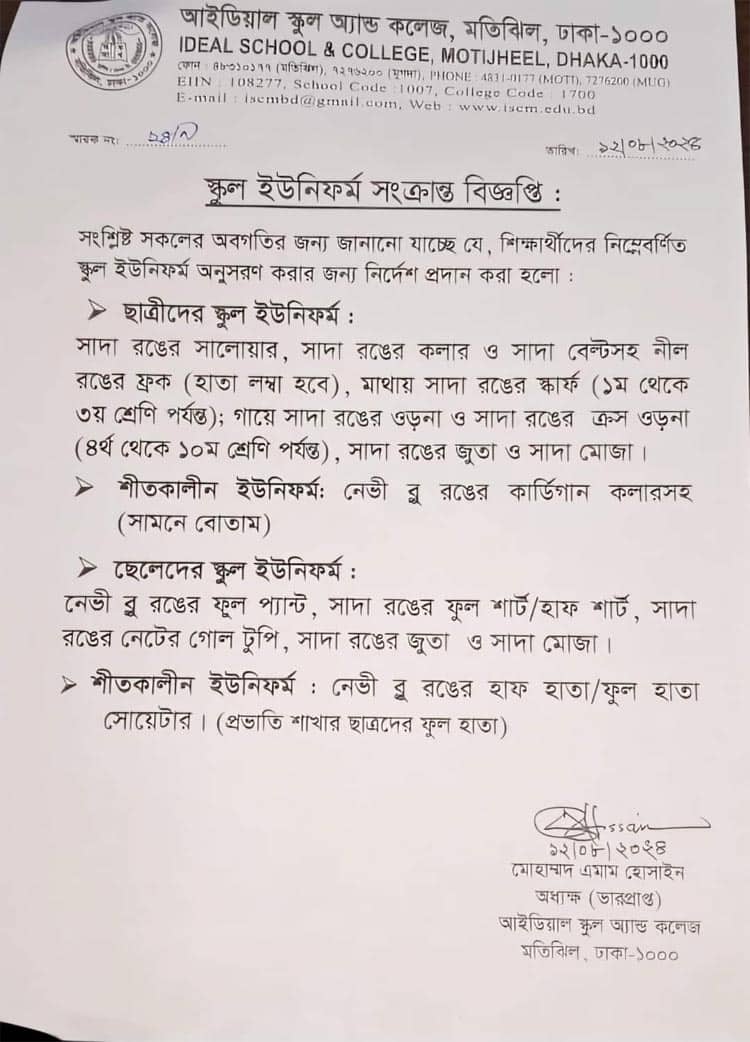 আইডিয়াল স্কুল অ্যান্ড কলেজ, মতিঝিল, ঢাকা-১০০০
IDEAL SCHOOL & COLLEGE, MOTIJHEEL, DHAKA-1000
ফোন : ৪৮৩১০১৭৭ (মতিঝিল), ৭২৭৬২০০ (মুগদা), PHONE : 4831-0177 (MOTI), 7276200 (MUG)
EIIN : 108277, School Code :1007, College Code : 1700
E-mail : iscmbd@gmail.com, Web : www.iscm.edu.bd
স্মারক নং:
তারিখ: ১২/০৮/২০২৪
স্কুল ইউনিফর্ম সংক্রান্ত বিজ্ঞপ্তি :
সংশ্লিষ্ট সকলের অবগতির জন্য জানানো যাচ্ছে যে, শিক্ষার্থীদের নিম্নেবর্ণিত
স্কুল ইউনিফর্ম অনুসরণ করার জন্য নির্দেশ প্রদান করা হলো :
➢ ছাত্রীদের স্কুল ইউনিফর্ম :
সাদা রঙের সালোয়ার, সাদা রঙের কলার ও সাদা বেল্টসহ নীল
রঙের ফ্রক (হাতা লম্বা হবে), মাথায় সাদা রঙের স্কার্ফ (১ম থেকে
৩য় শ্রেণি পর্যন্ত); গায়ে সাদা রঙের ওড়না ও সাদা রঙের ক্রস ওড়না
(৪র্থ থেকে ১০ম শ্রেণি পর্যন্ত), সাদা রঙের জুতা ও সাদা মোজা।
➢ শীতকালীন ইউনিফর্ম: নেভী ব্লু রঙের কার্ডিগান কলারসহ
(সামনে বোতাম)
➢ ছেলেদের স্কুল ইউনিফর্ম :
নেভী ব্লু রঙের ফুল প্যান্ট, সাদা রঙের ফুল শার্ট/হাফ শার্ট, সাদা
রঙের নেটের গোল টুপি, সাদা রঙের জুতা ও সাদা মোজা।
➢ শীতকালীন ইউনিফর্ম : নেভী ব্লু রঙের হাফ হাতা/ফুল হাতা
সোয়েটার। (প্রভাতি শাখার ছাত্রদের ফুল হাতা)
১২/০৮/২০২৪
মোহাম্মদ এমাম হোসাইন
অধ্যক্ষ (ভারপ্রাপ্ত)
আইডিয়াল স্কুল অ্যান্ড কলেজ
মতিঝিল, ঢাকা-১০০০